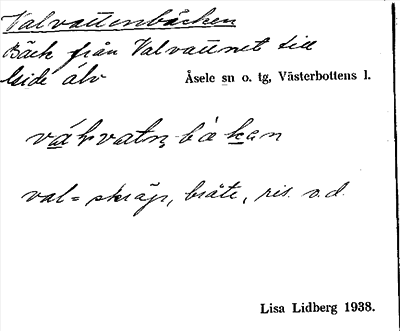 Valvattenbäcken
Bäck från Valvattnet till
lidé älv
Åsele sn o. tg, Västerbottens l.
val = skräp, bråte, ris o.d.
Lisa Lidberg 1938.